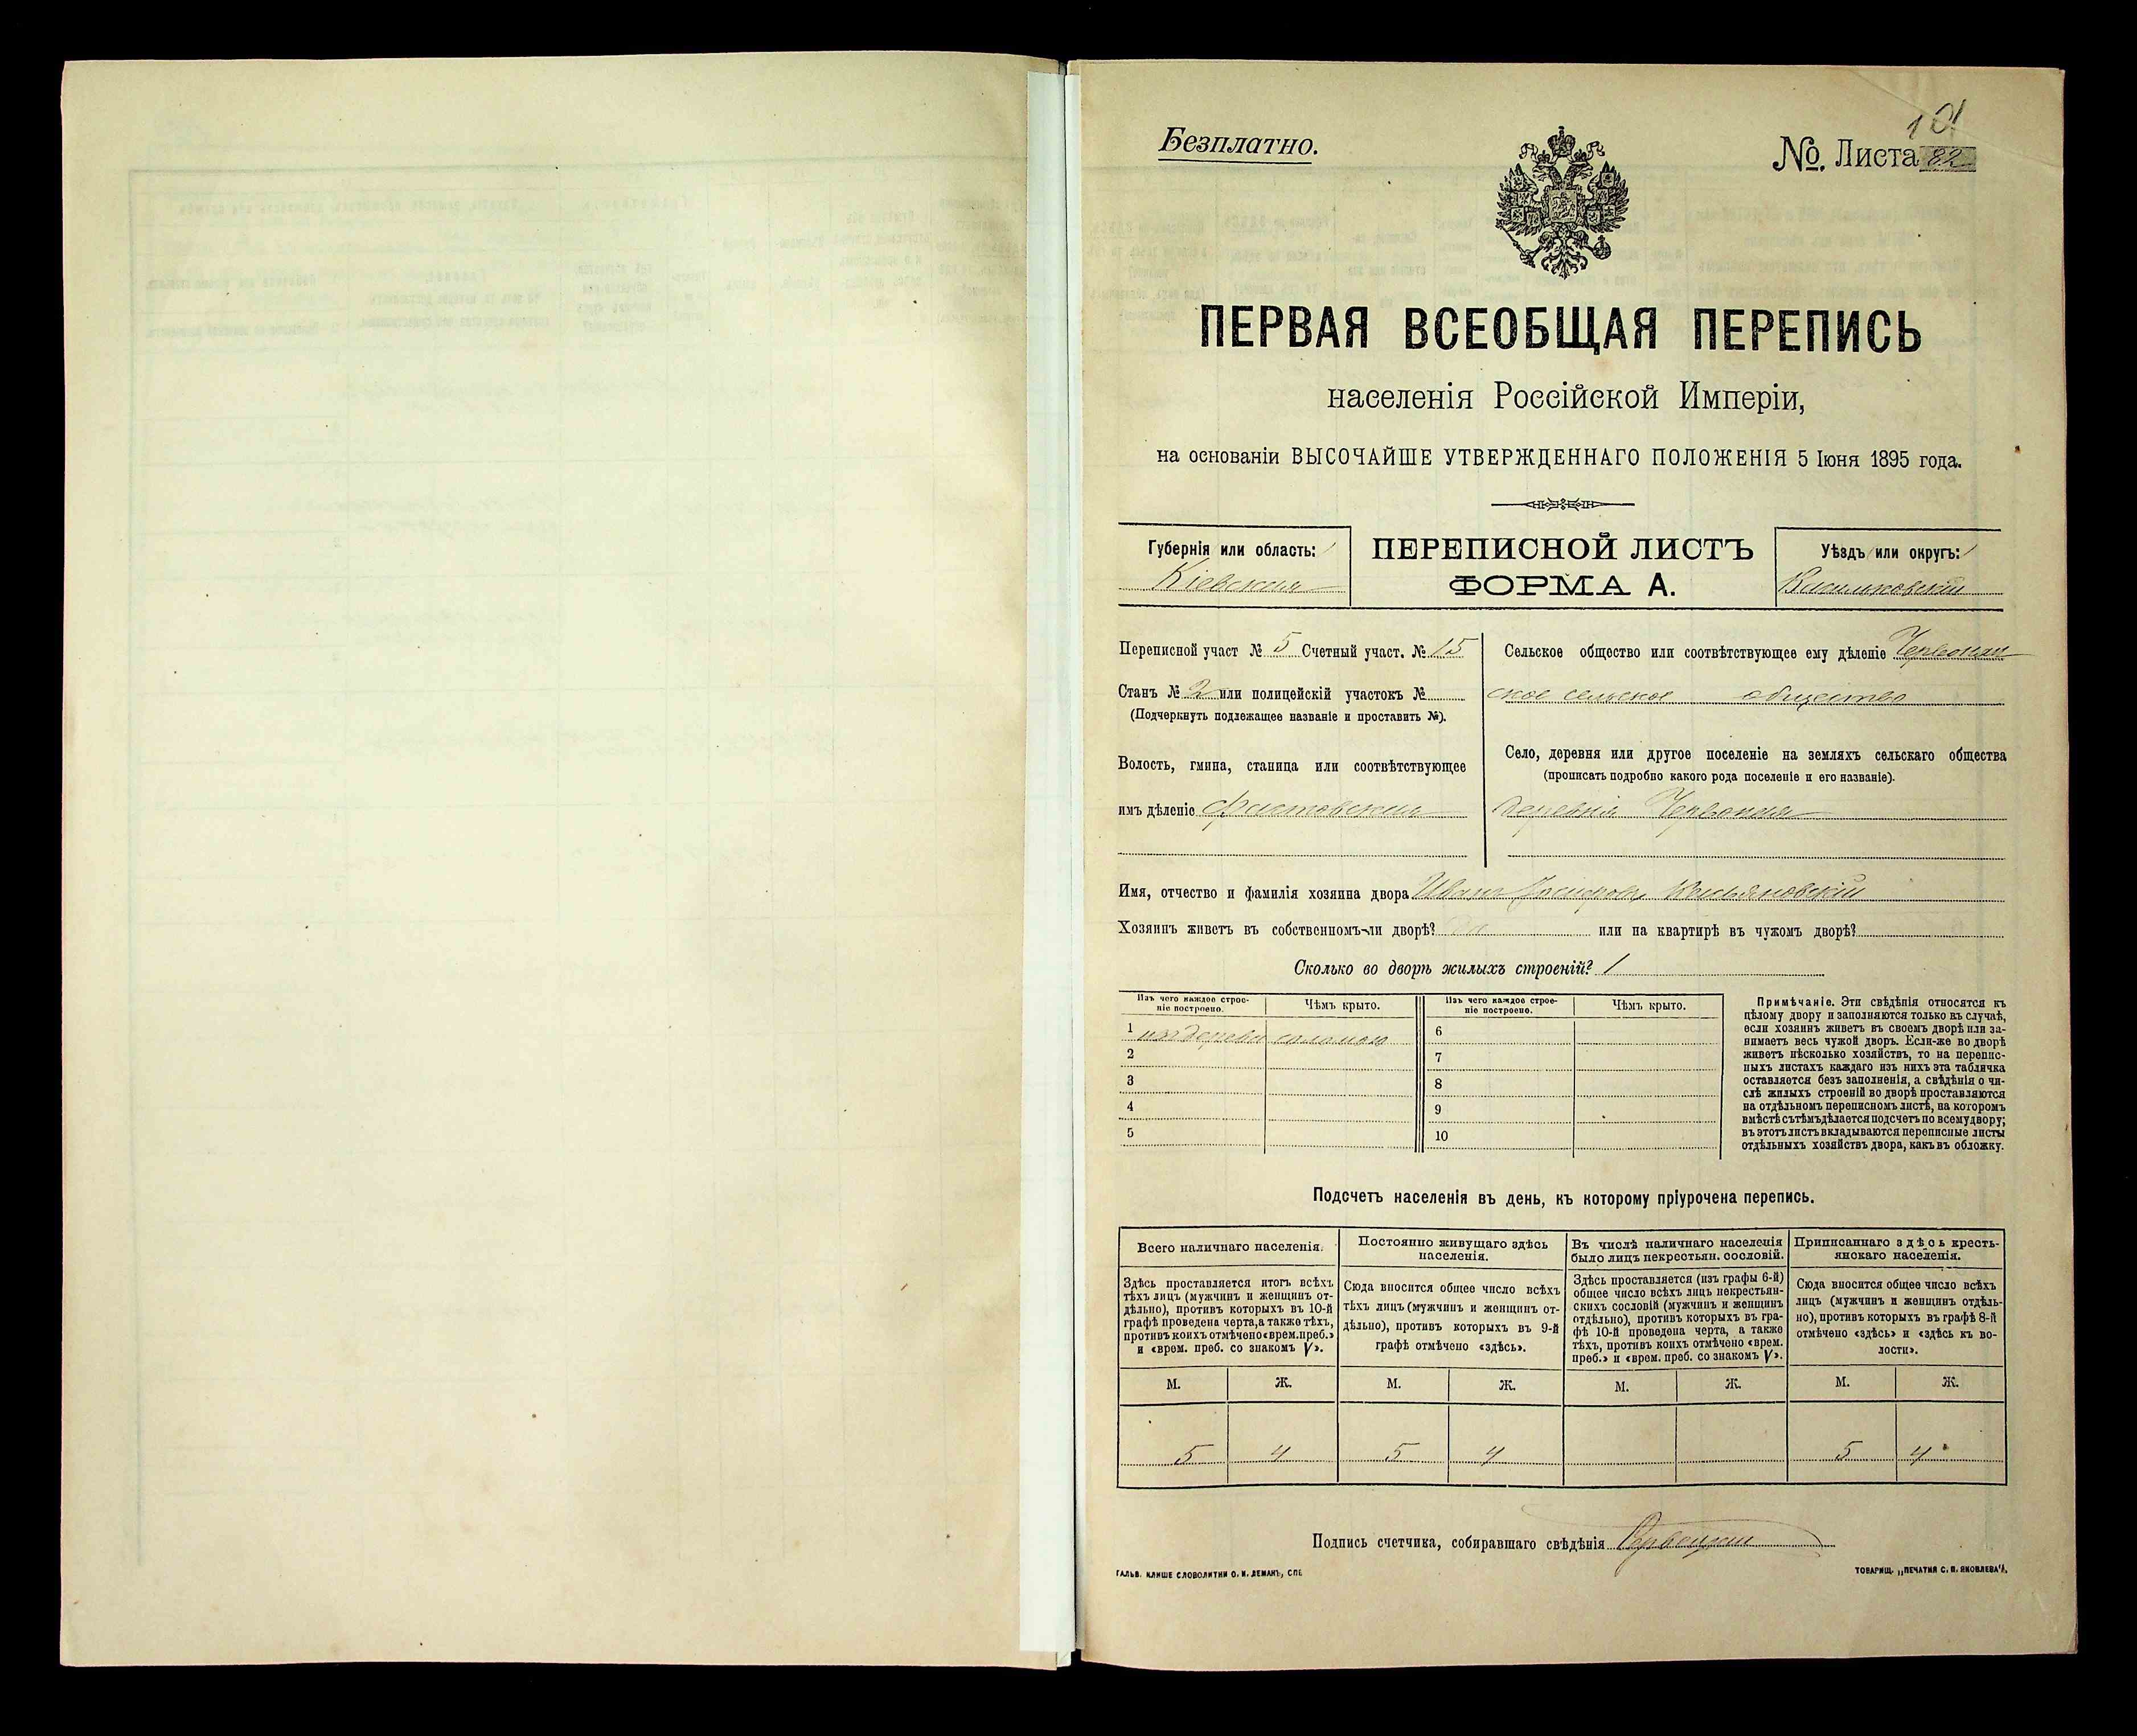 101
Безплатно.
№. Листа 82
ПЕРВАЯ ВСЕОБЩАЯ ПЕРЕПИСЬ
населенія Россійской Имперіи,
на основаніи ВЫСОЧАЙШЕ УТВЕРЖДЕННАГО ПОЛОЖЕНІЯ 5 Іюня 1895 года.
Губернія или область:
Кіевская
ПЕРЕПИСНОЙ ЛИСТЪ
ФОРМА А.
Уѣздъ или округъ:
Васильковскій
Переписной участ № 5 Счетный участ. № 15
Станъ № 2 или полицейскій участокъ №
(Подчеркнуть подлежащее названіе и проставить №).
Волость, гмина, станица или соотвѣтствующее
имъ дѣленіе Фастовская
Сельское общество или соотвѣтствующее ему дѣленіе Червонян
ское сельское общество
Село, деревня или другое поселеніе на земляхъ сельскаго общества
(прописать подробно какого рода поселеніе и его названіе).
деревня Червоная
Имя, отчество и фамилія хозяина двора Иванъ
Хозяинъ живетъ въ собственномъ-ли дворѣ? да или на квартирѣ въ чужомъ дворѣ?
Сколько во дворѣ жилыхъ строеній? 1
Изъ чего каждое строе-
ніе построено.
Чѣмъ крыто.
Изъ чего каждое строе-
ніе построено.
Чѣмъ крыто.
1 изъ дерева соломою
2
3
4
5
6
7
8
9
10
Примѣчаніе. Эти свѣдѣнія относятся къ
цѣлому двору и заполняются только въ случаѣ,
если хозяинъ живетъ въ своемъ дворѣ или за-
нимаетъ весь чужой дворъ. Если-же во дворѣ
живетъ нѣсколько хозяйствъ, то на перепис-
ныхъ листахъ каждаго изъ нихъ эта табличка
оставляется безъ заполненія, а свѣдѣнія о чи-
слѣ жилыхъ строеній во дворѣ проставляются
на отдѣльномъ переписномъ листѣ, на которомъ
вмѣстѣ съ тѣмъ дѣлается подсчетъ по всему двору;
въ этотъ листъ вкладываются переписные листы
отдѣльныхъ хозяйствъ двора, какъ въ обложку.
Подсчетъ населенія въ день, къ которому пріурочена перепись.
Всего наличнаго населенія.
Здѣсь проставляется итогъ всѣхъ
тѣхъ лицъ (мужчинъ и женщинъ от-
дѣльно), противъ которыхъ въ 10-й
графѣ проведена черта, а также тѣхъ,
противъ коихъ отмѣчено «врем. преб.»
и «врем. преб. со знакомъ V».
Постоянно живущаго здѣсь
населенія.
Сюда вносится общее число всѣхъ
тѣхъ лицъ (мужчинъ и женщинъ от-
дѣльно), противъ которыхъ въ 9-й
графѣ отмѣчено «здѣсь».
Въ числѣ наличнаго населенія
было лицъ некрестьян. сословій.
Здѣсь проставляется (изъ графы 6-й)
общее число всѣхъ лицъ некрестьян-
скихъ сословій (мужчинъ и женщинъ
отдѣльно), противъ которыхъ въ гра-
фѣ 10-й проведена черта, а также
тѣхъ, противъ коихъ отмѣчено «врем.
преб.» и «врем. преб. со знакомъ V».
Приписаннаго здѣсь кресть-
янскаго населенія.
Сюда вносится общее число всѣхъ
лицъ (мужчинъ и женщинъ отдѣль-
но), противъ которыхъ въ графѣ 8-й
отмѣчено «здѣсь» и «здѣсь къ во-
лости».
М. Ж. М. Ж. М. Ж. М. Ж.
5 4 5 4 5 4
Подпись счетчика, собиравшаго свѣдѣнія
ГАЛЬВ. КЛИШЕ СЛОВОЛИТНИ О. И. ЛЕМАНЪ, СПБ.
ТОВАРИЩ. „ПЕЧАТНЯ С. П. ЯКОВЛЕВА“.